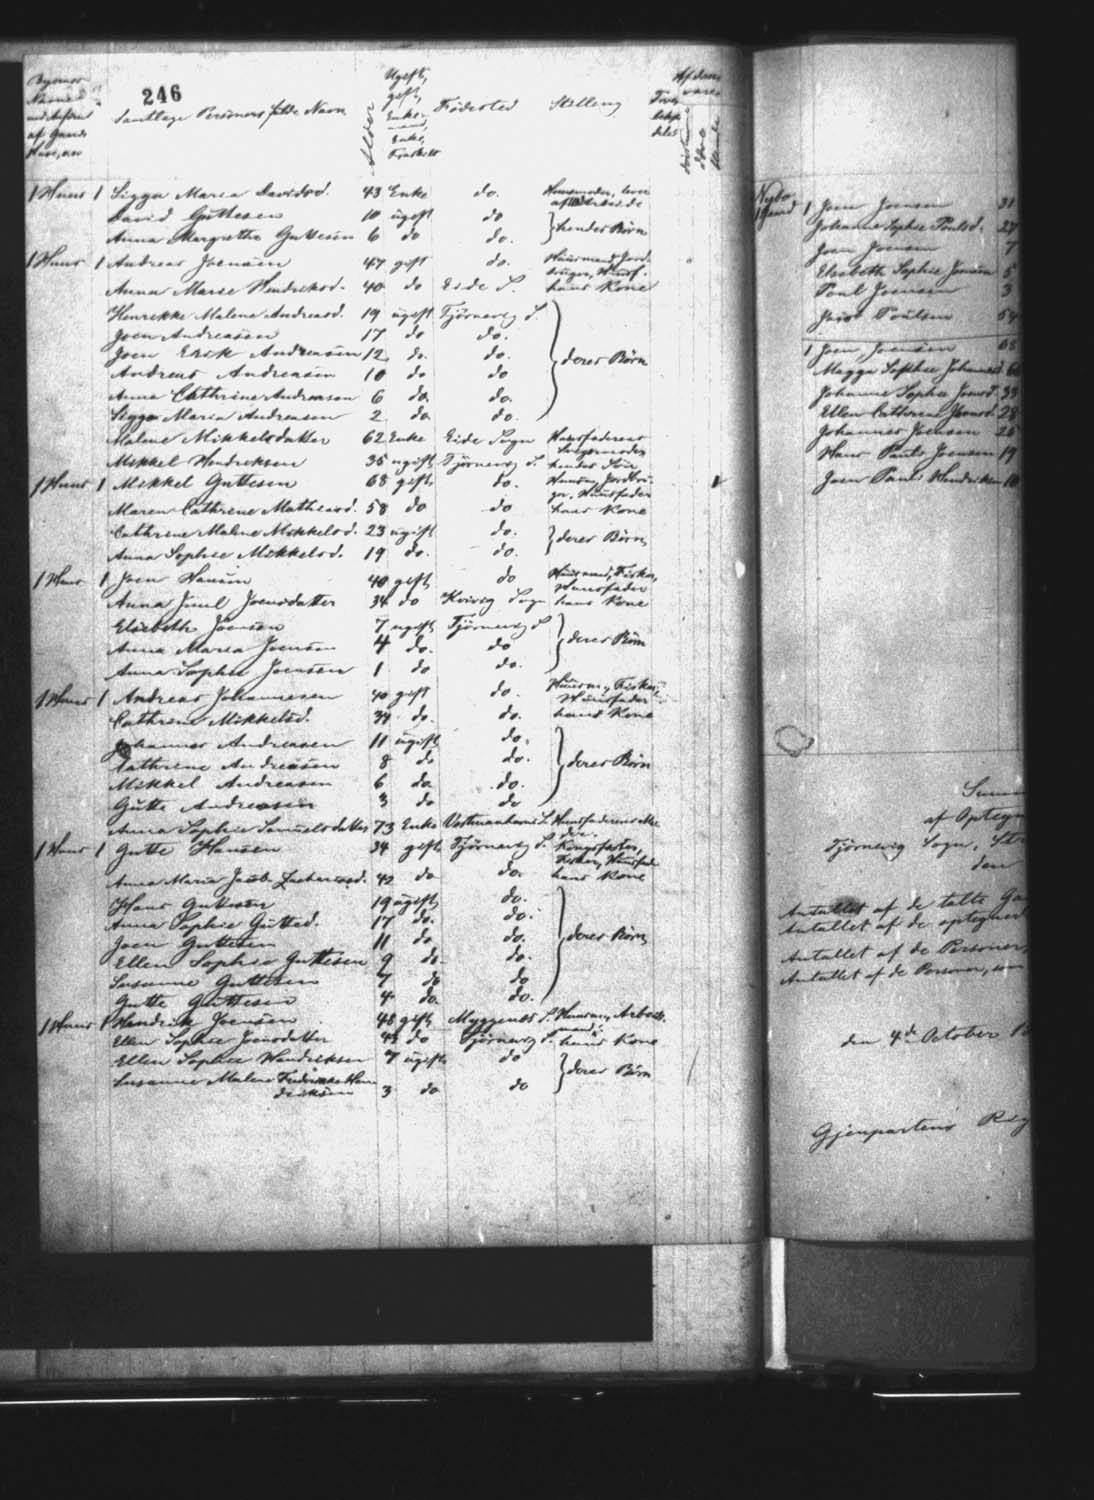 246
Samtlige Personers fulde Navn Alder Ugift, gift, Enkemand, Enke, Fraskilt Fødested Stilling
1 Huus 1 Sigga Maria Davidsd. 43 Enke do. Huusmoder, lever af
David Guttesen 10 ugift do } hendes Børn
Anna Margrethe Guttesen 6 do do.
1 Huus 1 Andreas Joensen 47 gift do. Huusmand, Jordbruger, Huusf.
Anna Marie Hendriksd. 40 do Eide S. hans Kone
Henrikke Malene Andreasd. 19 ugift Tjørnevig S.
Joen Andreasen 17 do do.
Joen Erik Andreasen 12 do. do. } deres Børn
Andreas Andreasen 10 do do
Anna Cathrine Andreasen 6 do. do.
Sigga Maria Andreasen 2 do. do.
Malene Mikkelsdatter 62 Enke Eide Sogn Huusfaderens
Mikkel Hendriksen 35 ugift Tjørnevig S. hendes Søn
1 Huus 1 Mikkel Guttesen 68 gift do. Huusm., Jordbruger, Huusfader
Maren Cathrine Mathiasd. 58 do do hans Kone
Cathrine Malene Mikkelsd. 23 ugift do. } deres Børn
Anna Sophie Mikkelsd. 19 do. do.
1 Huus 1 Joen Hansen 40 gift do Huusmand, Fisker, Huusfader
Anna Juul Joensdatter 34 do Kvivig Sogn hans Kone
Elisabeth Joensen 7 ugift Tjørnevig S
Anna Maria Joensen 4 do. do } deres Børn
Anna Sophie Joensen 1 do do.
1 Huus 1 Andreas Johannesen 40 gift do. Huusm., Fisker, Huusfader
Cathrine Mikkelsd. 34 do. do. hans Kone
Johannes Andreasen 11 ugift do.
Cathrine Andreasen 8 do do. } deres Børn
Mikkel Andreasen 6 do. do.
Gutte Andreasen 3 do do
Anna Sophie Samuelsdatter 73 Enke Vestmanhavns S. Huusfaderens Moder.
1 Huus 1 Gutte Hansen 34 gift Tjørnevig S. Kongsfæster, Fisker, Huusfader
Anna Maria Jacob. Zachariasd. 42 do do. hans Kone
Hans Guttesen 19 ugift do.
Anna Sophie Guttesd. 17 do. do.
Joen Guttesen 11 do do. } deres Børn
Ellen Sophie Guttesen 9 do. do.
Susanne Guttesen 7 do do
Gutte Guttesen 4 do. do.
1 Huus 1 Hendrik Joensen 48 gift Myggenæs S. Huusm., Arbeidsmand
Ellen Sophie Joensdatter 45 do Tjørnevig S. hans Kone
Ellen Sophie Hendriksen 7 ugift do } deres Børn
Susanne Malene Fredrikke Hendriksen 3 do do
1 Gaard 1 Joen Joensen 31
Johanne Sophie Poulsd. 27
Joen Joensen 7
Elisabeth Sophie Joensen 5
Poul Joensen 3
Jacob Poulsen 54
1 Joen Joensen
Magga Sophie Johannesd.
Johanne Sophie Joensd. 33
Ellen Cathrine Joensd. 28
Johannes Joensen 25
Hans Pauli Joensen 19
Joen Pauli Hendriksen 10
af
Tjørnevig Sogn,
den
Antallet af de talte
Antallet af de
Antallet af de Personer,
Antallet af de Personer, som
den 4de October
Gjenpartens